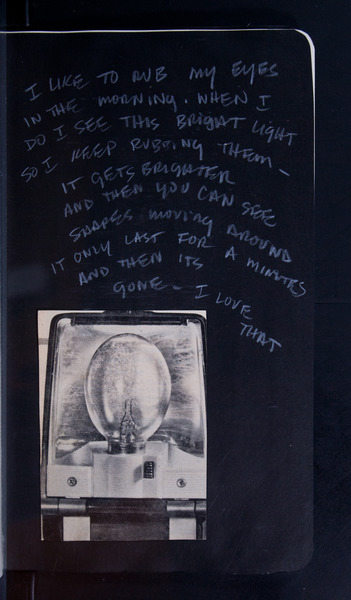 I LIKE TO RUB MY EYES
IN THE MORNING. WHEN I
DO I SEE THIS BRIGHT LIGHT
SO I KEEP RUBBING THEM –
IT GETS BRIGHTER
AND THEN YOU CAN SEE
SHAPES MOVING AROUND
IT ONLY LAST FOR A MINUTES
AND THEN ITS
GONE – I LOVE
THAT